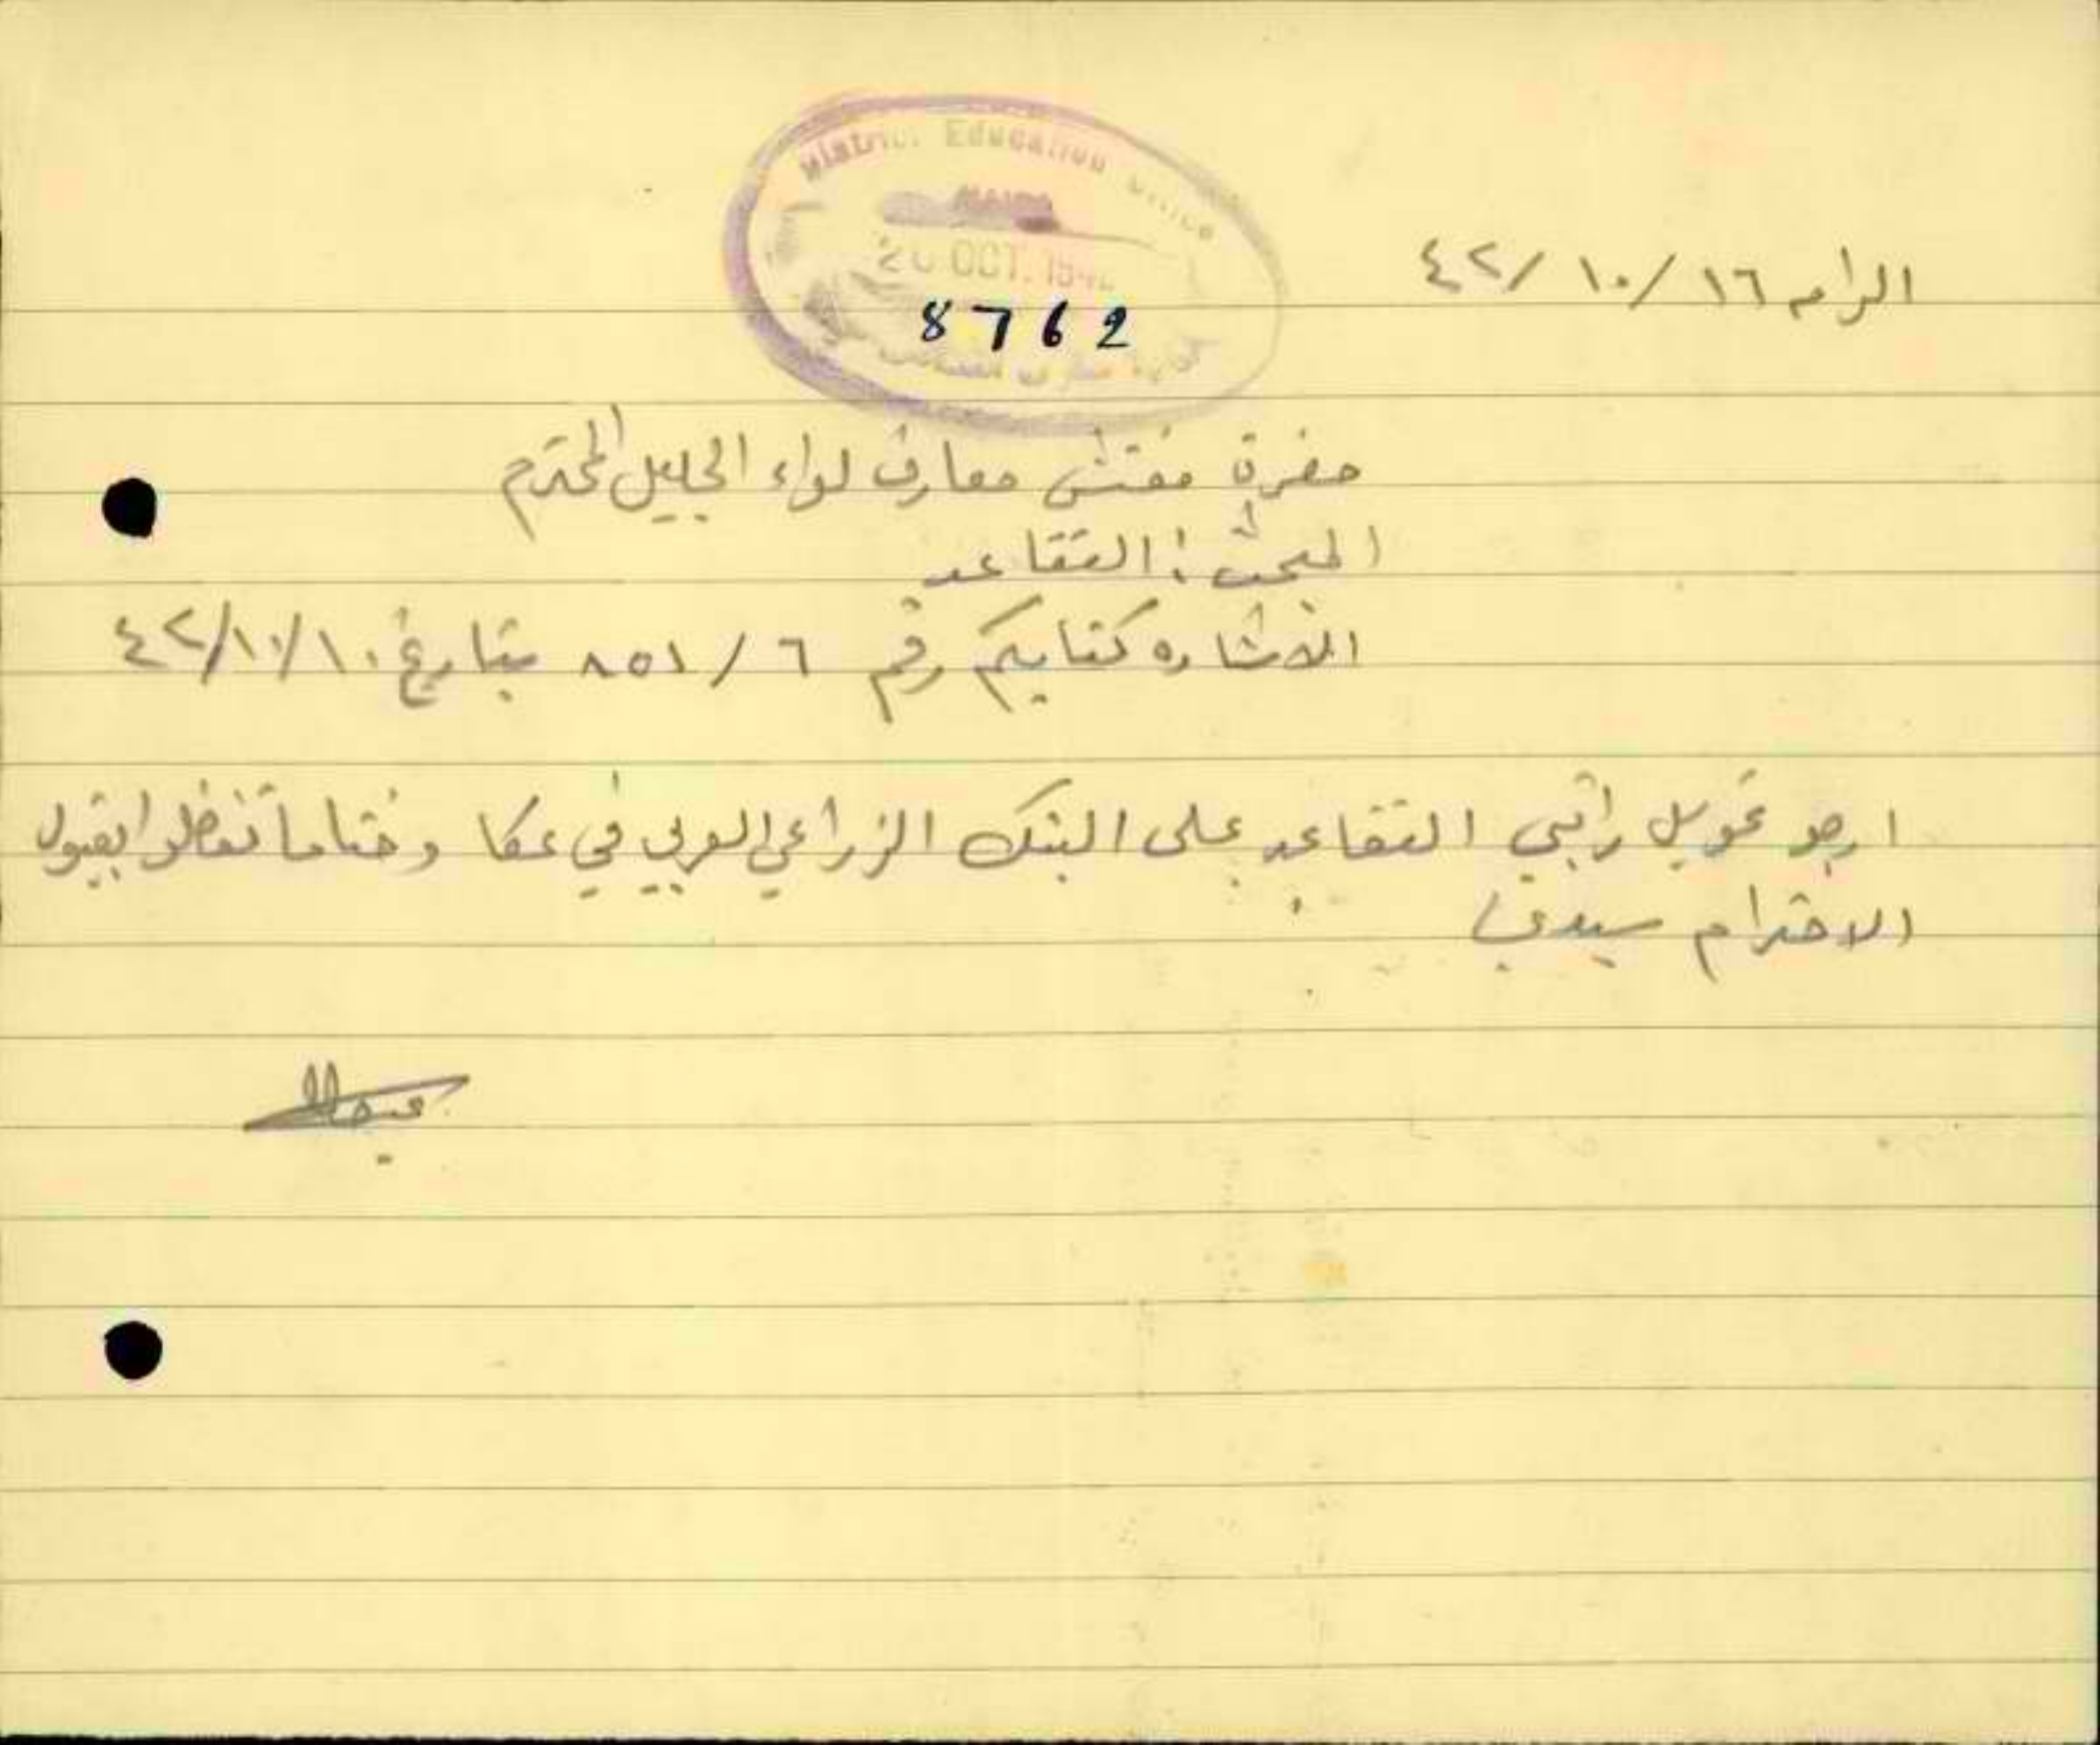 District Education Office
HAIFA
20 OCT. 1942
8762
الرامه ١٦/ ١٠/ ٤٢
حضرة مفتش معارف لواء الجليل المحترم
المبحث: التقاعد
الاشاره كتابكم رقم ٦/ ٨٥١ بتاريخ ١٠/١٠/ ٤٢
ارجو تحويل راتبي التقاعد على البنك الزراعي العربي في عكا وختاما تفضلوا بقبول
الاحترام سيدي